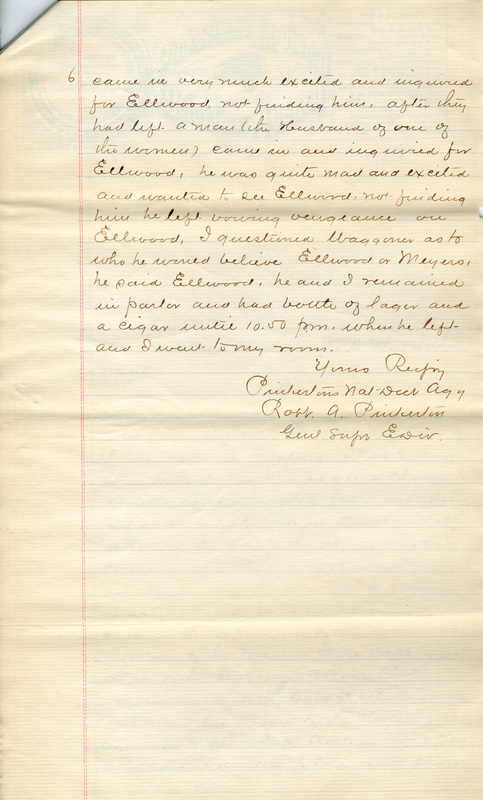 6 came in very much excited and inquired
for Ellwood, not finding him, after they
had left a man (the Husband of one of
the women) came in and inquired for
Ellwood, he was quite mad and excited
and wanted to see Ellwood, not finding
him he left vowing vengeance on
Ellwood, I questioned Waggoner as to
who he would believe Ellwood or Meyers,
he said Ellwood, he and I remained
in parlor and had bottle of lager and
a cigar until 10.50 pm. when he left
and I went to my room.
Yours Respy
Pinkertons Nat Dect Agy
Robt. A. Pinkerton
Genl Supt E Div.